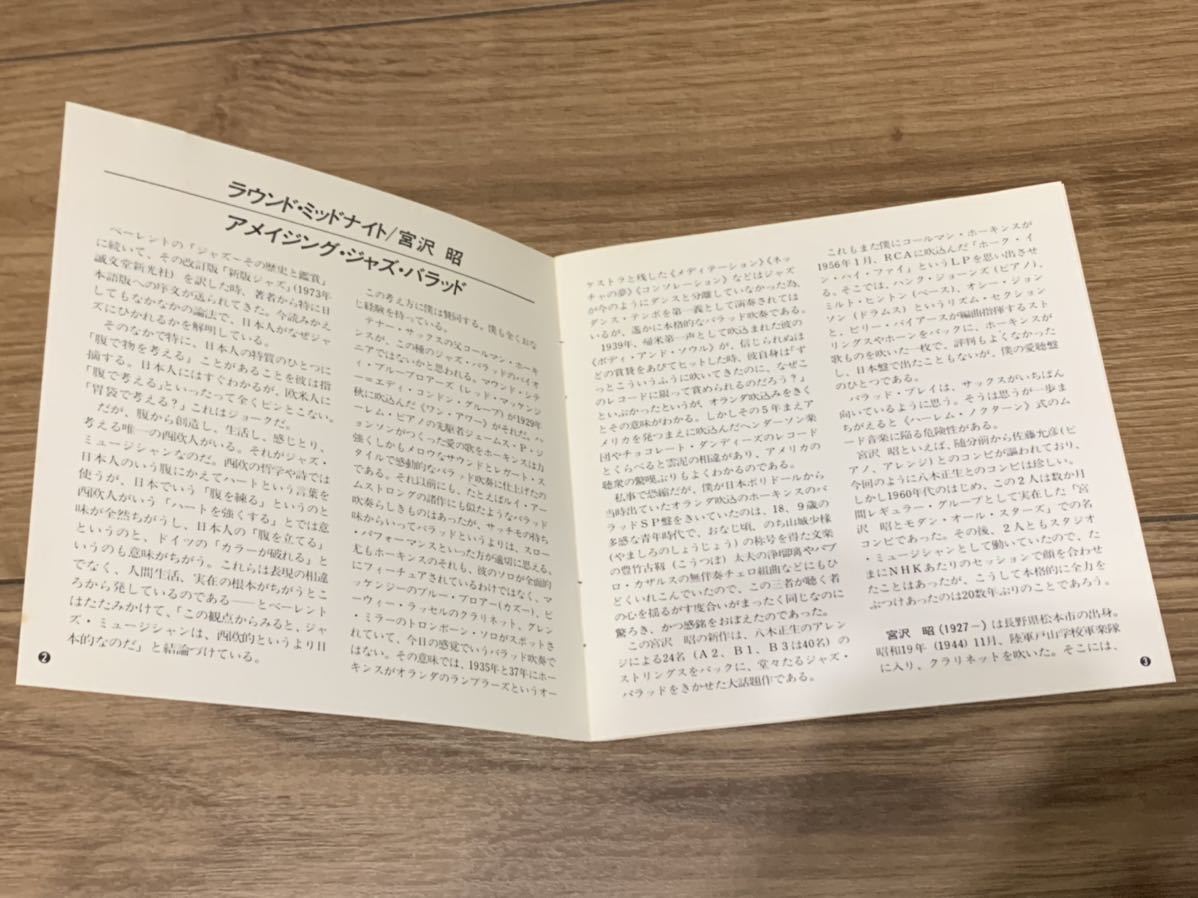 ラウンド・ミッドナイト/宮沢 昭
アメイジング・ジャズ・バラッド
ベーレントの「ジャズ〜その歴史と鑑賞」
に続いて、その改訂版「新版ジャズ」(1973年
誠文堂新光社) を訳した時、著者から特に日
本語版への序文が送られてきた。今読みかえ
してもなかなかの論法で、日本人がなぜジャ
ズにひかれるかを解明している。
そのなかで特に、日本人の特質のひとつに
「腹で物を考える」ことがあることを彼は指
摘する。日本人にはすぐわかるが、欧米人に
「腹で考える」といったって全くピンとこない。
「胃袋で考える?」これはジョークだ。
だが、腹から創造し、生活し、感じとり、
考える唯一の西欧人がいる。それがジャズ・
ミュージシャンなのだ。西欧の哲学や詩では
日本人のいう腹にかえてハートという言葉を
使うが、日本でいう「腹を練る」というのと
西欧人がいう「ハートを強くする」とでは意
味が全然ちがうし、日本人の「腹を立てる」
というのと、ドイツの「カラーが破れる」と
いうのも意味がちがう。これらは表現の相違
でなく、人間生活、実在の根本がちがうとこ
ろから発しているのである――とベーレント
はたたみかけて、「この観点からみると、ジャ
ズ・ミュージシャンは、西欧的というより日
本的なのだ」と結論づけている。
この考え方に僕は賛同する。僕も全くおな
じ経験を持っている。
テナー・サックスの父コールマン・ホーキ
ンスが、この種のジャズ・バラッドのパイオ
ニアではないかと思われる。マウンド・シテ
ィ・ブルーブロアーズ (レッド・マッケンジ
ー=エディ・コンドン・グループ) が1929年
秋に吹込んだ《ワン・アワー》がそれだ。ハ
ーレム・ピアノの先駆者ジェームス・P・ジ
ョンソンがつくった愛の歌をホーキンスは力
強くしかもメロウなサウンドとレガート・ス
タイルで感動的なバラッド吹奏に仕上げたの
である。それ以前にも、たとえばルイ・アー
ムストロングの諸作にも似たようなバラッド
吹奏らしきものはあったが、サッチモの持ち
味からいってバラッドというよりは、スロー
・パフォーマンスといった方が適切に思える。
尤もホーキンスのそれも、彼のソロが全面的
にフィーチュアされているわけではなく、マ
ッケンジーのブルー・ブロアー(カズート、ピ
ーウィー・ラッセルのクラリネット、グレン
・ミラーのトロンボーン・ソロがスポットさ
れていて、今日の感覚でいうバラッド吹奏で
はない。その意味では、1935年と37年にホー
キンスがオランダのランブラーズというオー
❷
ケストラと残した《メディテーション》《ネッ
チャの夢》《コンソレーション》などはジャズ
が今のようにダンスと分離していなかった為、
ダンス・テンポを第一義として演奏されては
いるが、遙かに本格的なバラッド吹奏である。
1939年、帰米第一声として吹込まれた彼の
《ボディ・アンド・ソウル》が、信じられぬほ
どの賞賛をあびてヒットした時、彼自身は「ず
っとこういうふうに吹いてきたのに、なぜこ
のレコードに限って賞められるのだろう?」
といぶかったというが、オランダ吹込みをきく
とその意味がわかる。しかしその5年まえア
メリカを発つまえに吹込んだヘンダーソン楽
団やチョコレート・ダンディーズのレコード
とくらべると雲泥の相違があり、アメリカの
聴衆の驚嘆ぶりもよくわかるのである。
私事で恐縮だが、僕が日本ポリドールから
当時出ていたオランダ吹込のホーキンスのバ
ラッドSP盤をきいていたのは、18、9歳の
多感な青年時代で、おなじ頃、のち山城少掾
(やましろのしょうじょう) の称号を得た文楽
の豊竹古靱 (こうつぼ) 太夫の浄瑠璃やパブ
ロ・カザルスの無伴奏チェロ組曲などにもひ
どくいれこんでいたので、この三者が聴く者
の心を揺るがす度合いがまったく同じなのに
驚ろき、かつ感銘をおぼえたのであった。
この宮沢 昭の新作は、八木正生のアレン
ジによる24名 (A2、B1、B3は40名) の
ストリングスをバックに、堂々たるジャズ・
バラッドをきかせた大話題作である。
これもまた僕にコールマン・ホーキンスが
1956年1月、RCAに吹込んだ「ホーク・イ
ン・ハイ・ファイ」というLPを思い出させ
る。そこでは、ハンク・ジョーンズ (ピアノ)、
ミルト・ヒントン (ベース)、オシー・ジョン
ソン (ドラムス) というリズム・セクション
と、ビリー・バイアースが編曲指揮するスト
リングスやホーンをバックに、ホーキンスが
歌ものを吹いた一枚で、評判もよくなかった
し、日本盤で出たこともないが、僕の愛聴盤
のひとつである。
バラッド・プレイは、サックスがいちばん
向いているように思う。そうは思うが一歩ま
ちがえると《ハーレム・ノクターン》式のム
ード音楽に陥る危険性がある。
宮沢 昭といえば、随分前から佐藤允彦(ピ
アノ、アレンジ)とのコンビが謳われており、
今回のように八木正生とのコンビは珍しい。
しかし1960年代のはじめ、この2人は数か月
間レギュラー・グループとして実在した「宮
沢 昭とモダン・オール・スターズ」での名
コンビであった。その後、2人ともスタジオ
・ミュージシャンとして働いていたので、た
まにNHKあたりのセッションで顔を合わせ
たことはあったが、こうして本格的に全力を
ぶつけあったのは20数年ぶりのことであろう。
宮沢 昭 (1927〜) は長野県松本市の出身。
昭和19年 (1944) 11月、陸軍戸山学校軍楽隊
に入り、クラリネットを吹いた。そこには、
❸